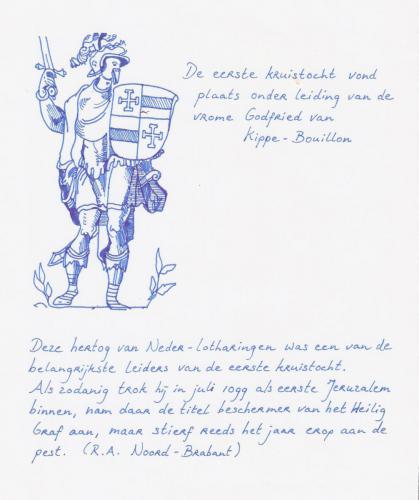 De eerste kruistocht vond
plaats onder leiding van de
vrome Godfried van
Kippe-Bouillon
Deze hertog van Neder-Lotharingen was een van de
belangrijkste leiders van de eerste kruistocht.
Als zodanig trok hij in juli 1099 als eerste Jeruzalem
binnen, nam daar de titel beschermer van het Heilig
Graf aan, maar stierf reeds het jaar erop aan de
pest. (R.A. Noord-Brabant)